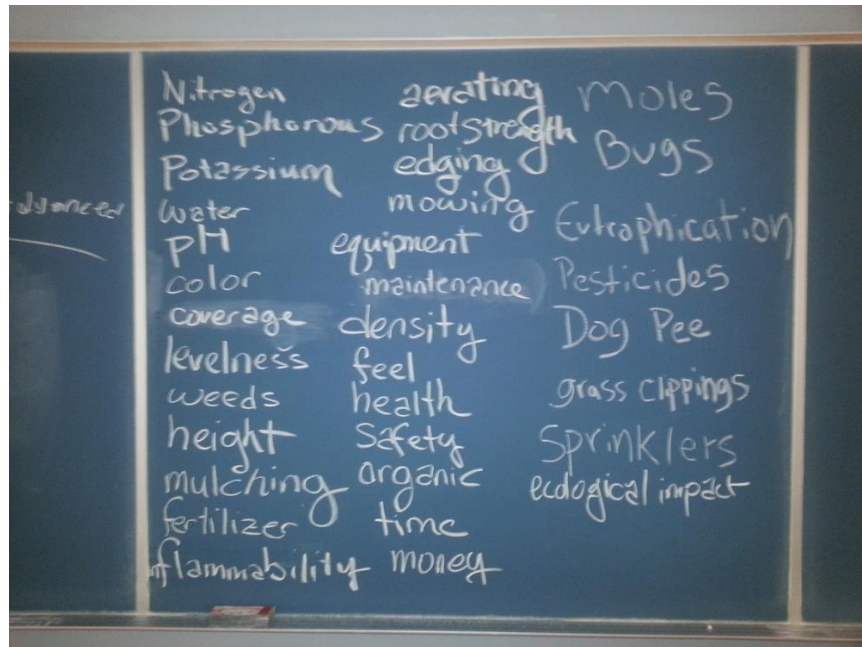 Nitrogen
Phosphorous
Potassium
water
pH
color
coverage
levelness
weeds
height
mulching
fertilizer
inflammability
aerating
root strength
edging
mowing
equipment
maintenance
density
feel
health
safety
organic
time
money
Moles
Bugs
Eutrophication
Pesticides
Dog Pee
grass clippings
Sprinklers
ecological impact